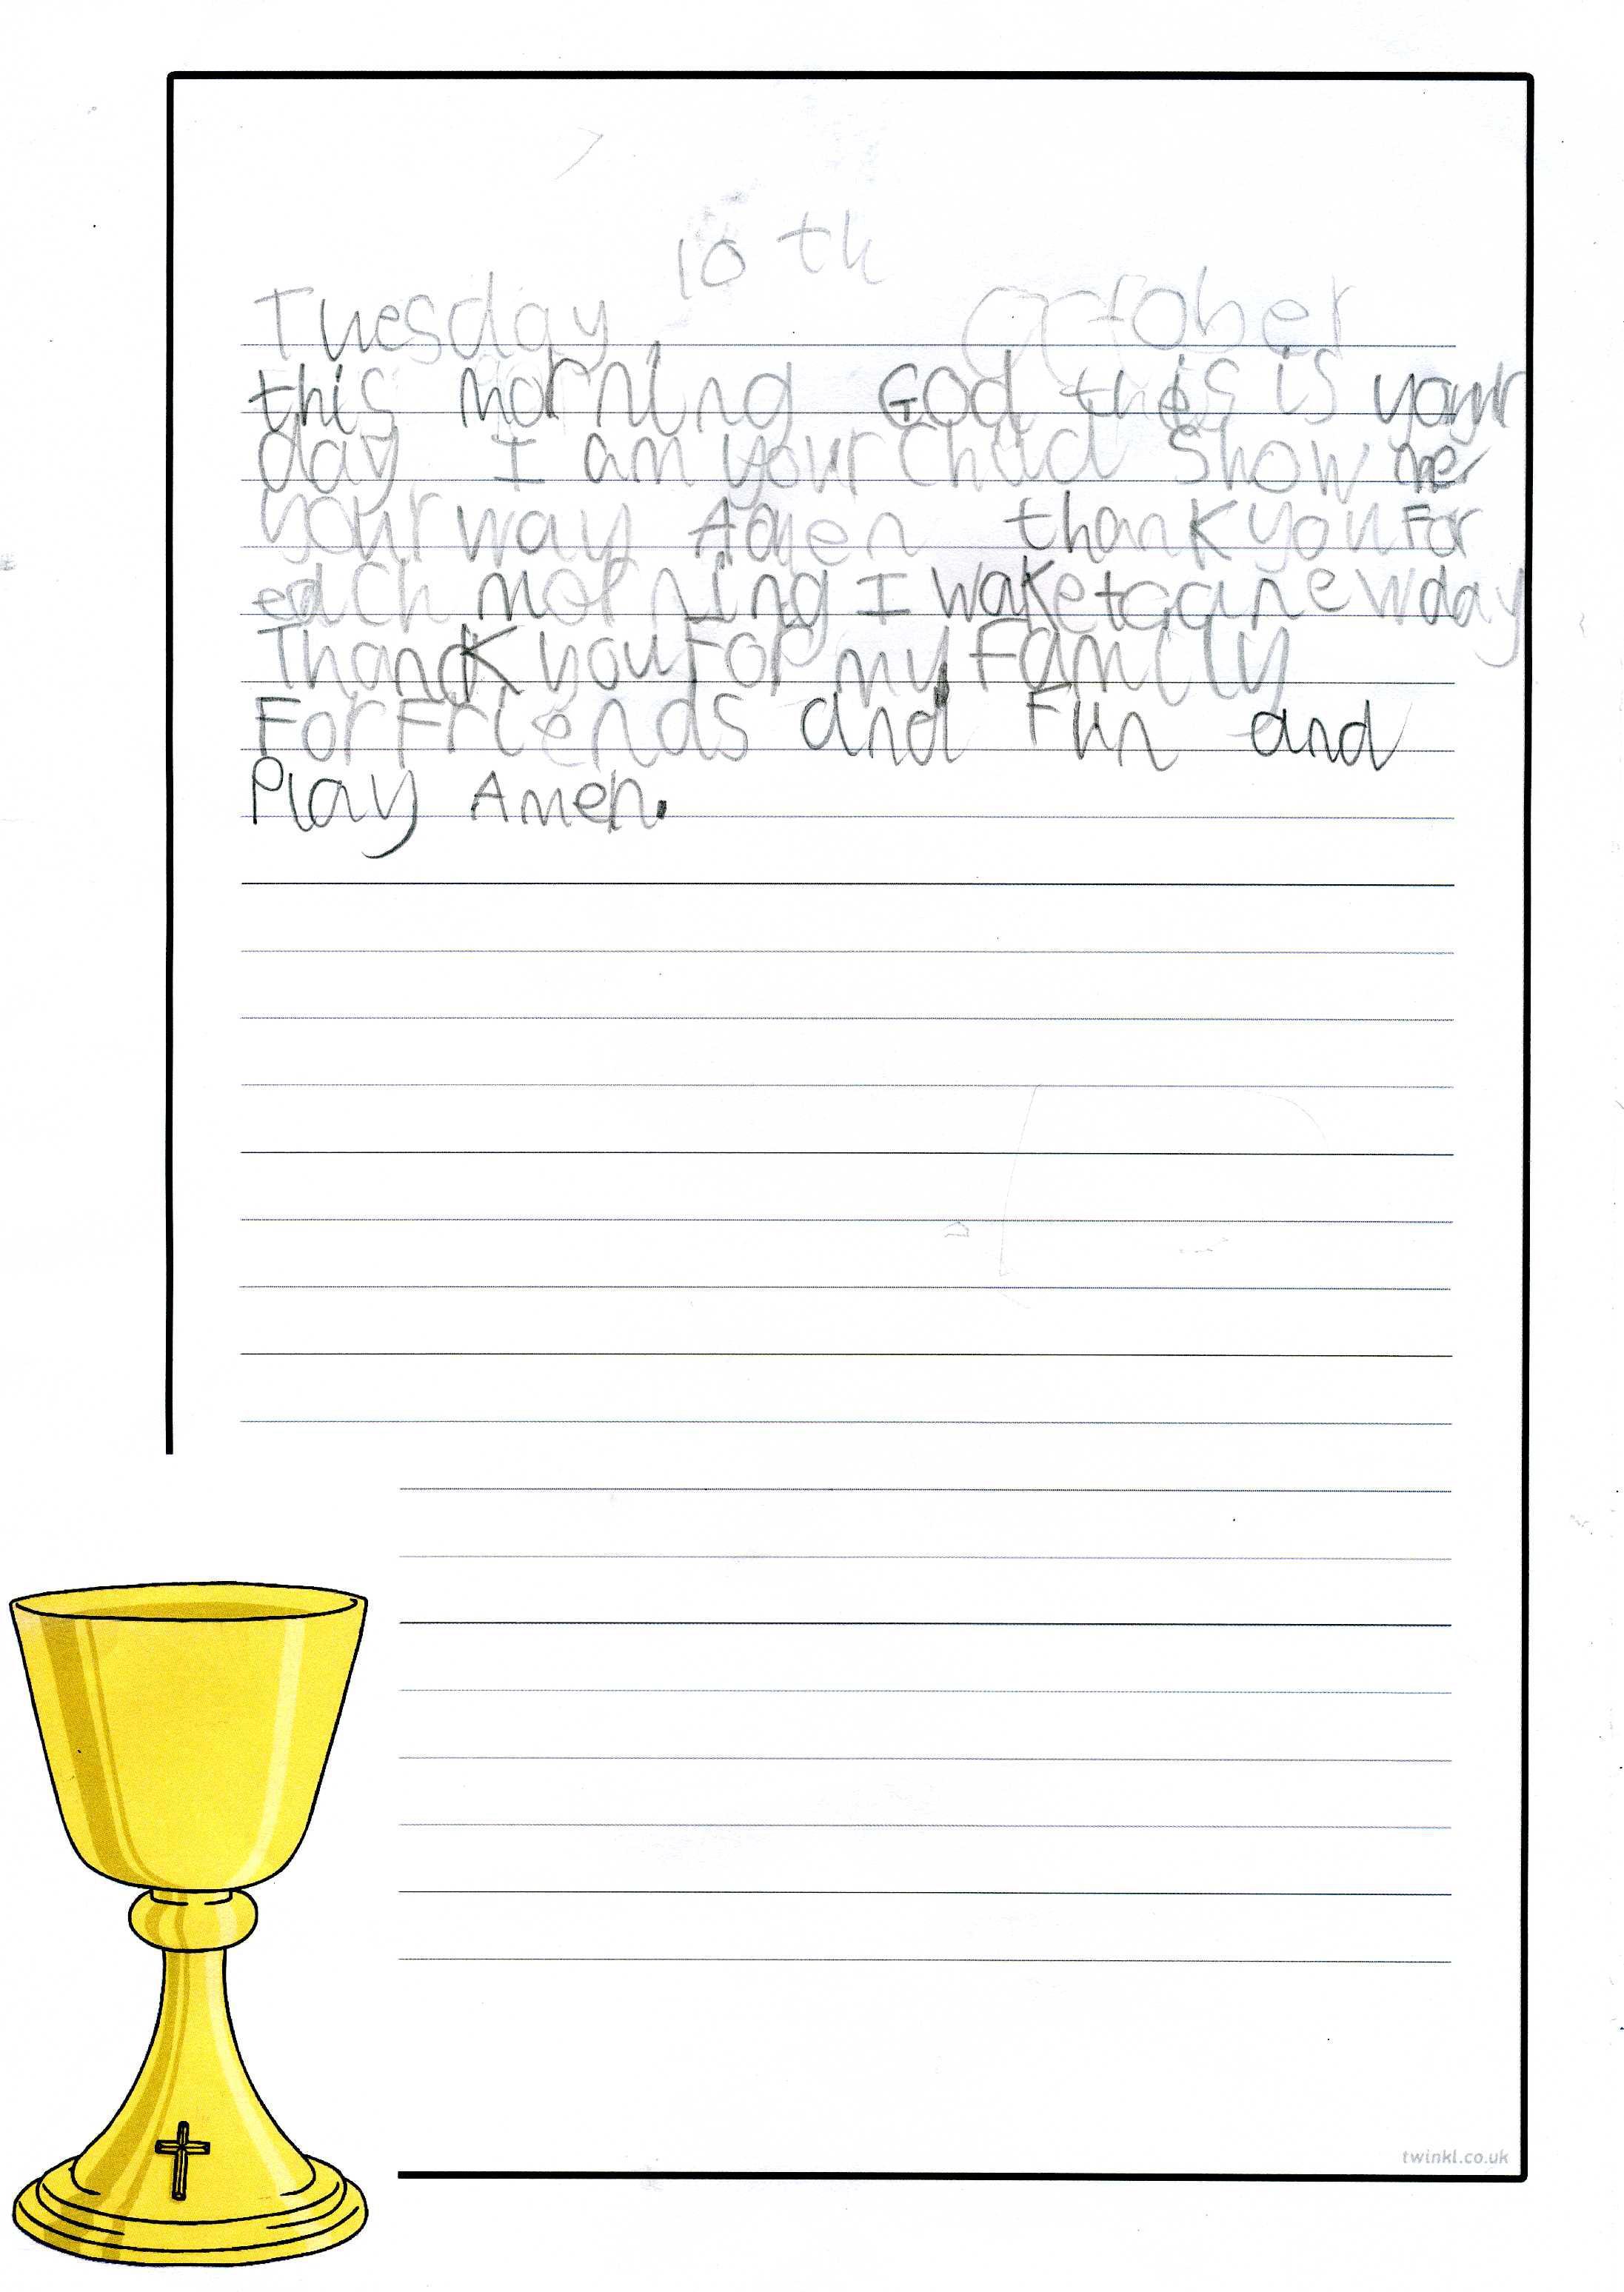 Tuesday 10th October
this morning God this is your
day I am your child Show me
your way Amen thank you For
each morning I wake to a new day
Thank you For my Family
For Friends and Fun and
Play Amen.
twinkl.co.uk